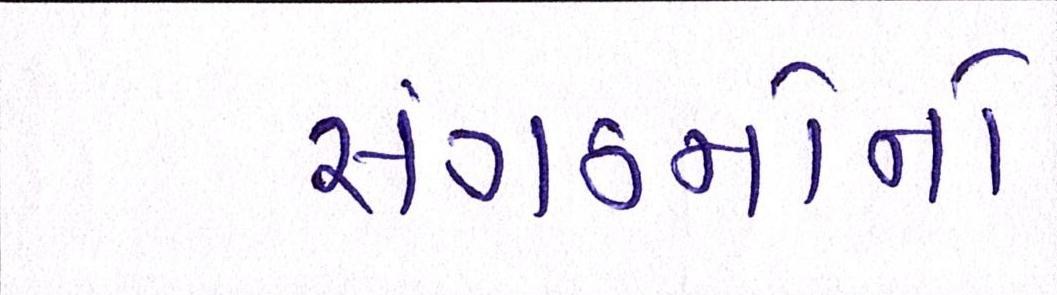 સંગઠનોનો